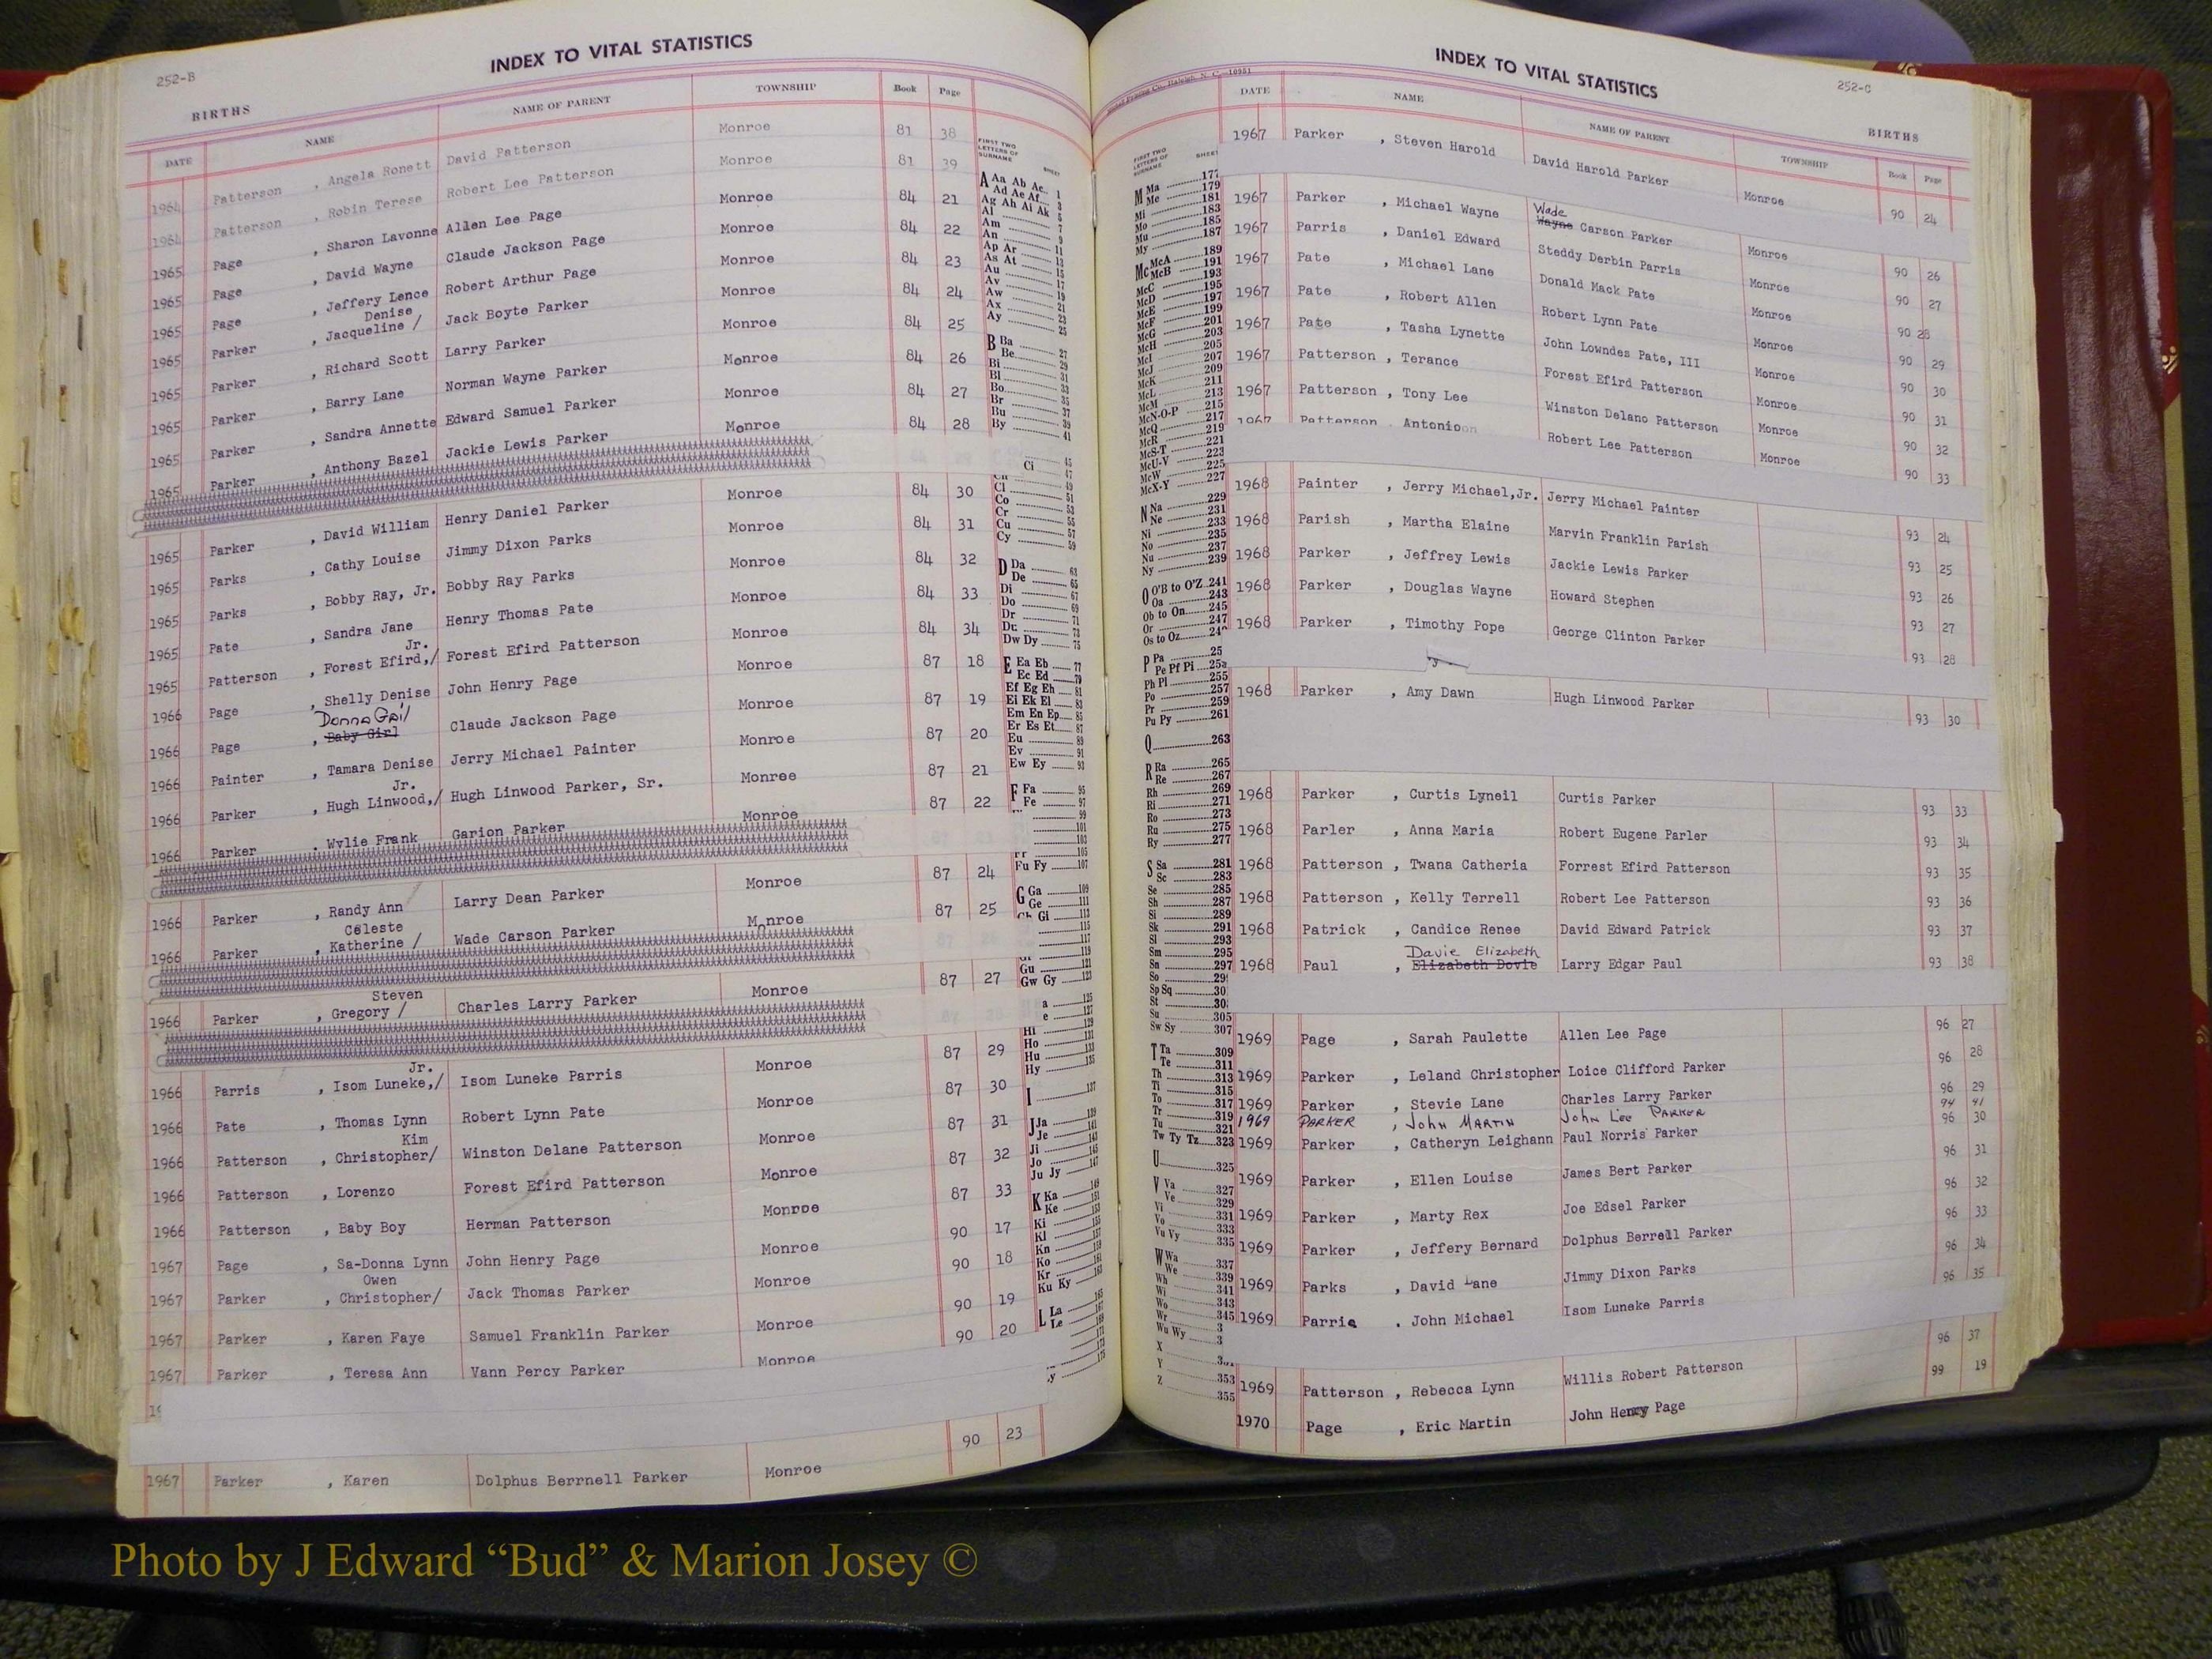 252-B
INDEX TO VITAL STATISTICS
BIRTHS
DATE NAME NAME OF PARENT TOWNSHIP Book Page
1964 Patterson , Angela Ronett David Patterson Monroe 81 38
1964 Patterson , Robin Terese Robert Lee Patterson Monroe 81 39
1965 Page , Sharon Lavonne Allen Lee Page Monroe 84 21
1965 Page , David Wayne Claude Jackson Page Monroe 84 22
1965 Page , Jeffery Lence Robert Arthur Page Monroe 84 23
Denise
1965 Parker , Jacqueline / Jack Boyte Parker Monroe 84 24
1965 Parker , Richard Scott Larry Parker Monroe 84 25
1965 Parker , Barry Lane Norman Wayne Parker Monroe 84 26
1965 Parker , Sandra Annette Edward Samuel Parker Monroe 84 27
1965 Parker , Anthony Bazel Jackie Lewis Parker Monroe 84 28
1965 Parker , David William Henry Daniel Parker Monroe 84 30
1965 Parks , Cathy Louise Jimmy Dixon Parks Monroe 84 31
1965 Parks , Bobby Ray, Jr. Bobby Ray Parks Monroe 84 32
1965 Pate , Sandra Jane Henry Thomas Pate Monroe 84 33
Jr.
1965 Patterson , Forest Efird,/ Forest Efird Patterson Monroe 84 34
1966 Page , Shelly Denise John Henry Page Monroe 87 18
Donna Gail
1966 Page , Baby Girl Claude Jackson Page Monroe 87 19
1966 Painter , Tamara Denise Jerry Michael Painter Monroe 87 20
Jr.
1966 Parker , Hugh Linwood,/ Hugh Linwood Parker, Sr. Monroe 87 21
1966 Parker , Wylie Frank Garion Parker Monroe 87 22
1966 Parker , Randy Ann Larry Dean Parker Monroe 87 24
Celeste
1966 Parker , Katherine / Wade Carson Parker Monroe 87 25
Steven
1966 Parker , Gregory / Charles Larry Parker Monroe 87 27
Jr.
1966 Parris , Isom Luneke,/ Isom Luneke Parris Monroe 87 29
1966 Pate , Thomas Lynn Robert Lynn Pate Monroe 87 30
Kim
1966 Patterson , Christopher/ Winston Delane Patterson Monroe 87 31
1966 Patterson , Lorenzo Forest Efird Patterson Monroe 87 32
1966 Patterson , Baby Boy Herman Patterson Monroe 87 33
1967 Page , Sa-Donna Lynn John Henry Page Monroe 90 17
Owen
1967 Parker , Christopher/ Jack Thomas Parker Monroe 90 18
1967 Parker , Karen Faye Samuel Franklin Parker Monroe 90 19
1967 Parker , Teresa Ann Vann Percy Parker Monroe 90 20
1967 Parker , Karen Dolphus Berrnell Parker Monroe 90 23
FIRST TWO LETTERS OF SURNAME SHEET
A Aa Ab Ac 1
Ad Ae Af 3
Ag Ah Ai Ak 5
Al 7
Am 9
An 11
Ap Ar 13
As At 15
Au 17
Av 19
Aw 21
Ax 23
Ay 25
B Ba 27
Be 29
Bi 31
Bl 33
Bo 35
Br 37
Bu 39
By 41
Ci 45
47
Cl 49
Co 51
Cr 53
Cu 55
Cy 59
D Da 63
De 65
Di 67
Do 69
Dr 71
Du 73
Dw Dy 75
E Ea Eb 77
Ec Ed 79
Ef Eg Eh 81
Ei Ek El 83
Em En Ep 85
Er Es Et 87
Eu 89
Ev 91
Ew Ey 93
F Fa 95
Fe 97
99
101
103
105
Fu Fy 107
G Ga 109
Ge 111
Gh Gi 113
115
117
119
Gu 121
Gw Gy 123
a 125
e 127
Hi 129
Ho 131
Hu 133
Hy 135
I 137
J Ja 139
Je 141
Ji 143
Jo 145
Ju Jy 147
K Ka 149
Ke 151
Ki 153
Kl 155
Kn 157
Ko 159
Kr 161
Ku Ky 163
L La 165
Le 167
169
171
173
y 175
INDEX TO VITAL STATISTICS
252-C
BIRTHS
DATE NAME NAME OF PARENT TOWNSHIP Book Page
1967 Parker , Steven Harold David Harold Parker Monroe 90 24
Wade
1967 Parker , Michael Wayne Wayne Carson Parker Monroe 90 26
1967 Parris , Daniel Edward Steddy Derbin Parris Monroe 90 27
1967 Pate , Michael Lane Donald Mack Pate Monroe 90 28
1967 Pate , Robert Allen Robert Lynn Pate Monroe 90 29
1967 Pate , Tasha Lynette John Lowndes Pate, III Monroe 90 30
1967 Patterson , Terance Forest Efird Patterson Monroe 90 31
1967 Patterson , Tony Lee Winston Delano Patterson Monroe 90 32
1967 Patterson , Antonio Robert Lee Patterson Monroe 90 33
1968 Painter , Jerry Michael,Jr. Jerry Michael Painter 93 24
1968 Parish , Martha Elaine Marvin Franklin Parish 93 25
1968 Parker , Jeffrey Lewis Jackie Lewis Parker 93 26
1968 Parker , Douglas Wayne Howard Stephen 93 27
1968 Parker , Timothy Pope George Clinton Parker 93 28
1968 Parker , Amy Dawn Hugh Linwood Parker 93 30
1968 Parker , Curtis Lyneil Curtis Parker 93 33
1968 Parler , Anna Maria Robert Eugene Parler 93 34
1968 Patterson , Twana Catheria Forrest Efird Patterson 93 35
1968 Patterson , Kelly Terrell Robert Lee Patterson 93 36
1968 Patrick , Candice Renee David Edward Patrick 93 37
Davie Elizabeth
1968 Paul , Elizabeth Dovie Larry Edgar Paul 93 38
1969 Page , Sarah Paulette Allen Lee Page 96 27
1969 Parker , Leland Christopher Loice Clifford Parker 96 28
1969 Parker , Stevie Lane Charles Larry Parker 96 29
1969 PARKER , John MARTIN John Lee PARKER 94 41
1969 Parker , Catheryn Leighann Paul Norris Parker 96 30
1969 Parker , Ellen Louise James Bert Parker 96 31
1969 Parker , Marty Rex Joe Edsel Parker 96 32
1969 Parker , Jeffery Bernard Dolphus Berrell Parker 96 33
1969 Parks , David Lane Jimmy Dixon Parks 96 34
1969 Parris , John Michael Isom Luneke Parris 96 35
1969 Patterson , Rebecca Lynn Willis Robert Patterson 96 37
1970 Page , Eric Martin John Henry Page 99 19
FIRST TWO LETTERS OF SURNAME SHEET
M Ma 177
Me 179
Mi 181
Mo 183
Mu 185
My 187
Mc McA 189
McB 191
McC 193
McD 195
McE 197
McF 199
McG 201
McH 203
McI 205
McJ 207
McK 209
McL 211
McM 213
McN-O-P 215
McQ 217
McR 219
McS-T 221
McU-V 223
McW 225
McX-Y 227
N Na 229
Ne 231
Ni 233
No 235
Nu 237
Ny 239
O O'B to O'Z 241
Oa 243
Ob to On 245
Or 247
Os to Oz
P Pa
Pe Pf Pi
Ph Pl 255
Po 257
Pr 259
Pu Py 261
Q 263
R Ra 265
Re 267
Rh 269
Ri 271
Ro 273
Ru 275
Ry 277
S Sa 281
Sc 283
Se 285
Sh 287
Si 289
Sk 291
Sl 293
Sm 295
Sn 297
So
Sp Sq
St
Su 305
Sw Sy 307
T Ta 309
Te 311
Th 313
Ti 315
To 317
Tr 319
Tu 321
Tw Ty Tz 323
U 325
V Va 327
Ve 329
Vi 331
Vo 333
Vu Vy 335
W Wa 337
We 339
Wh 341
Wi 343
Wo 345
Wr
Wu Wy
X
Y 353
Z 355
Photo by J Edward “Bud” & Marion Josey ©